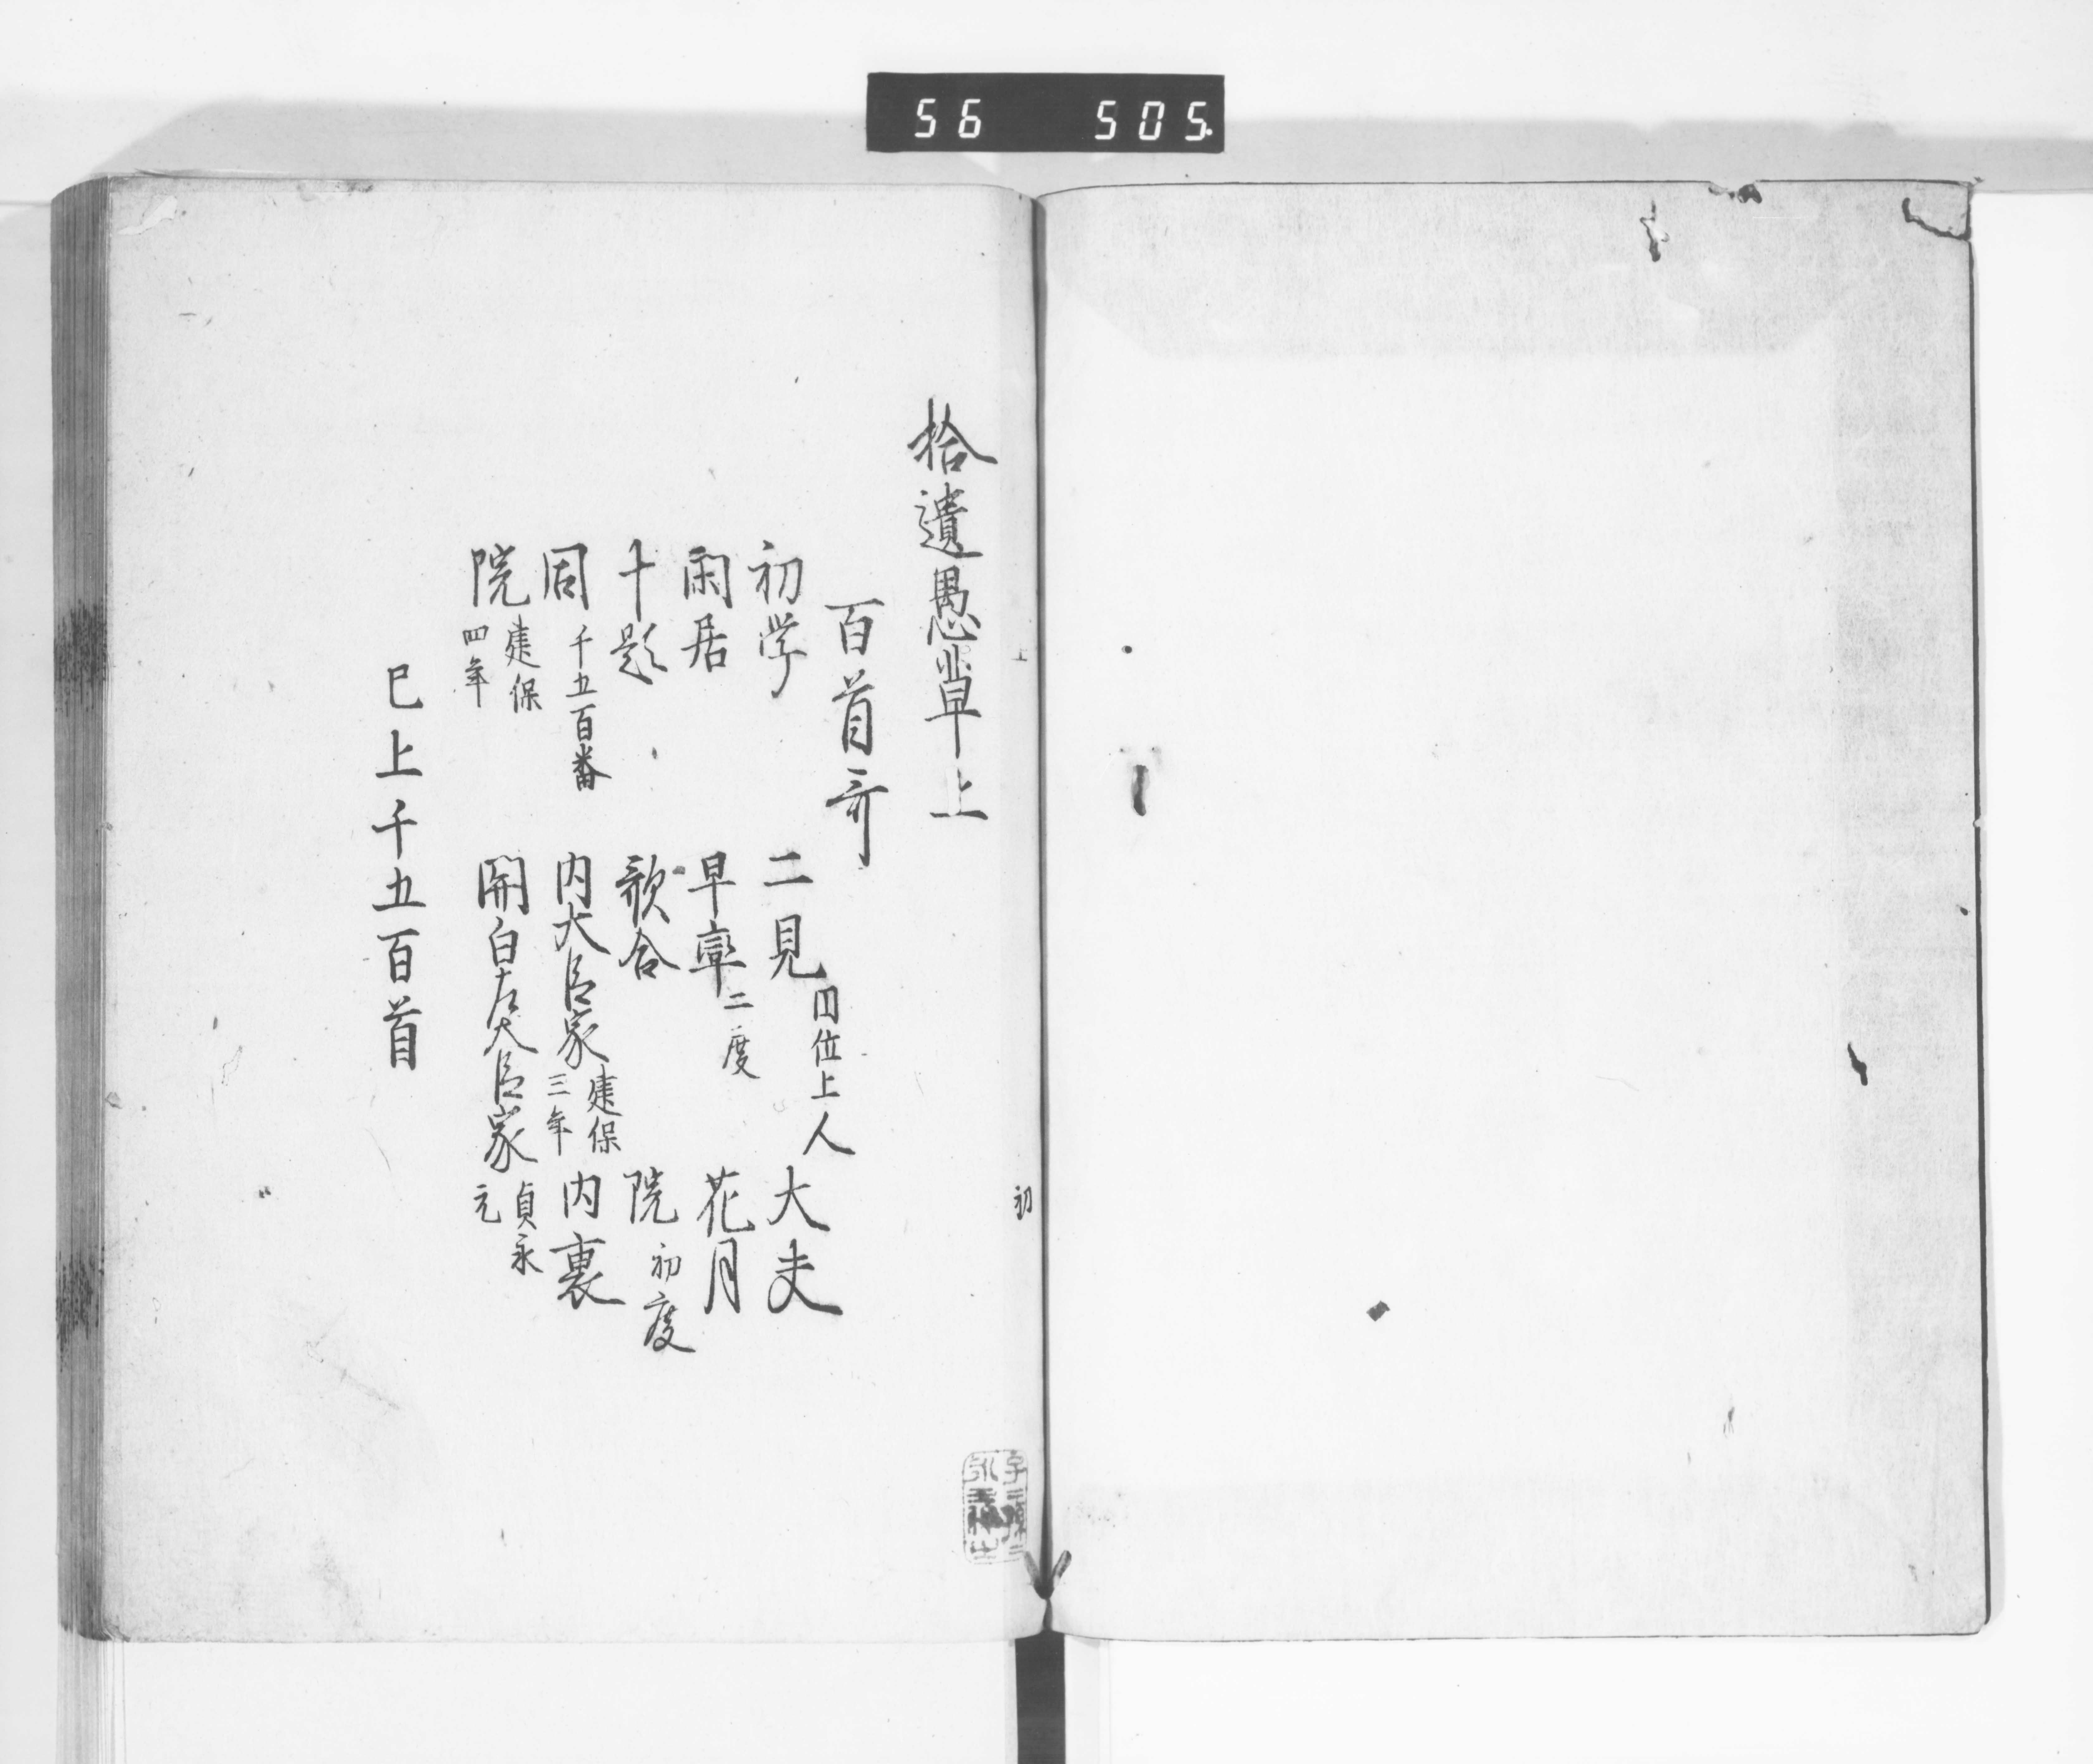 56 505
拾遺愚草上
百首哥
初学 二見 円位上人 大夫
閑居 早率 二度 花月
十題 歌合 院 初度
同 千五百番 内大臣家 建保三年 内裏
院 建保四年 関白左大臣家 貞永元
已上千五百首
上
初